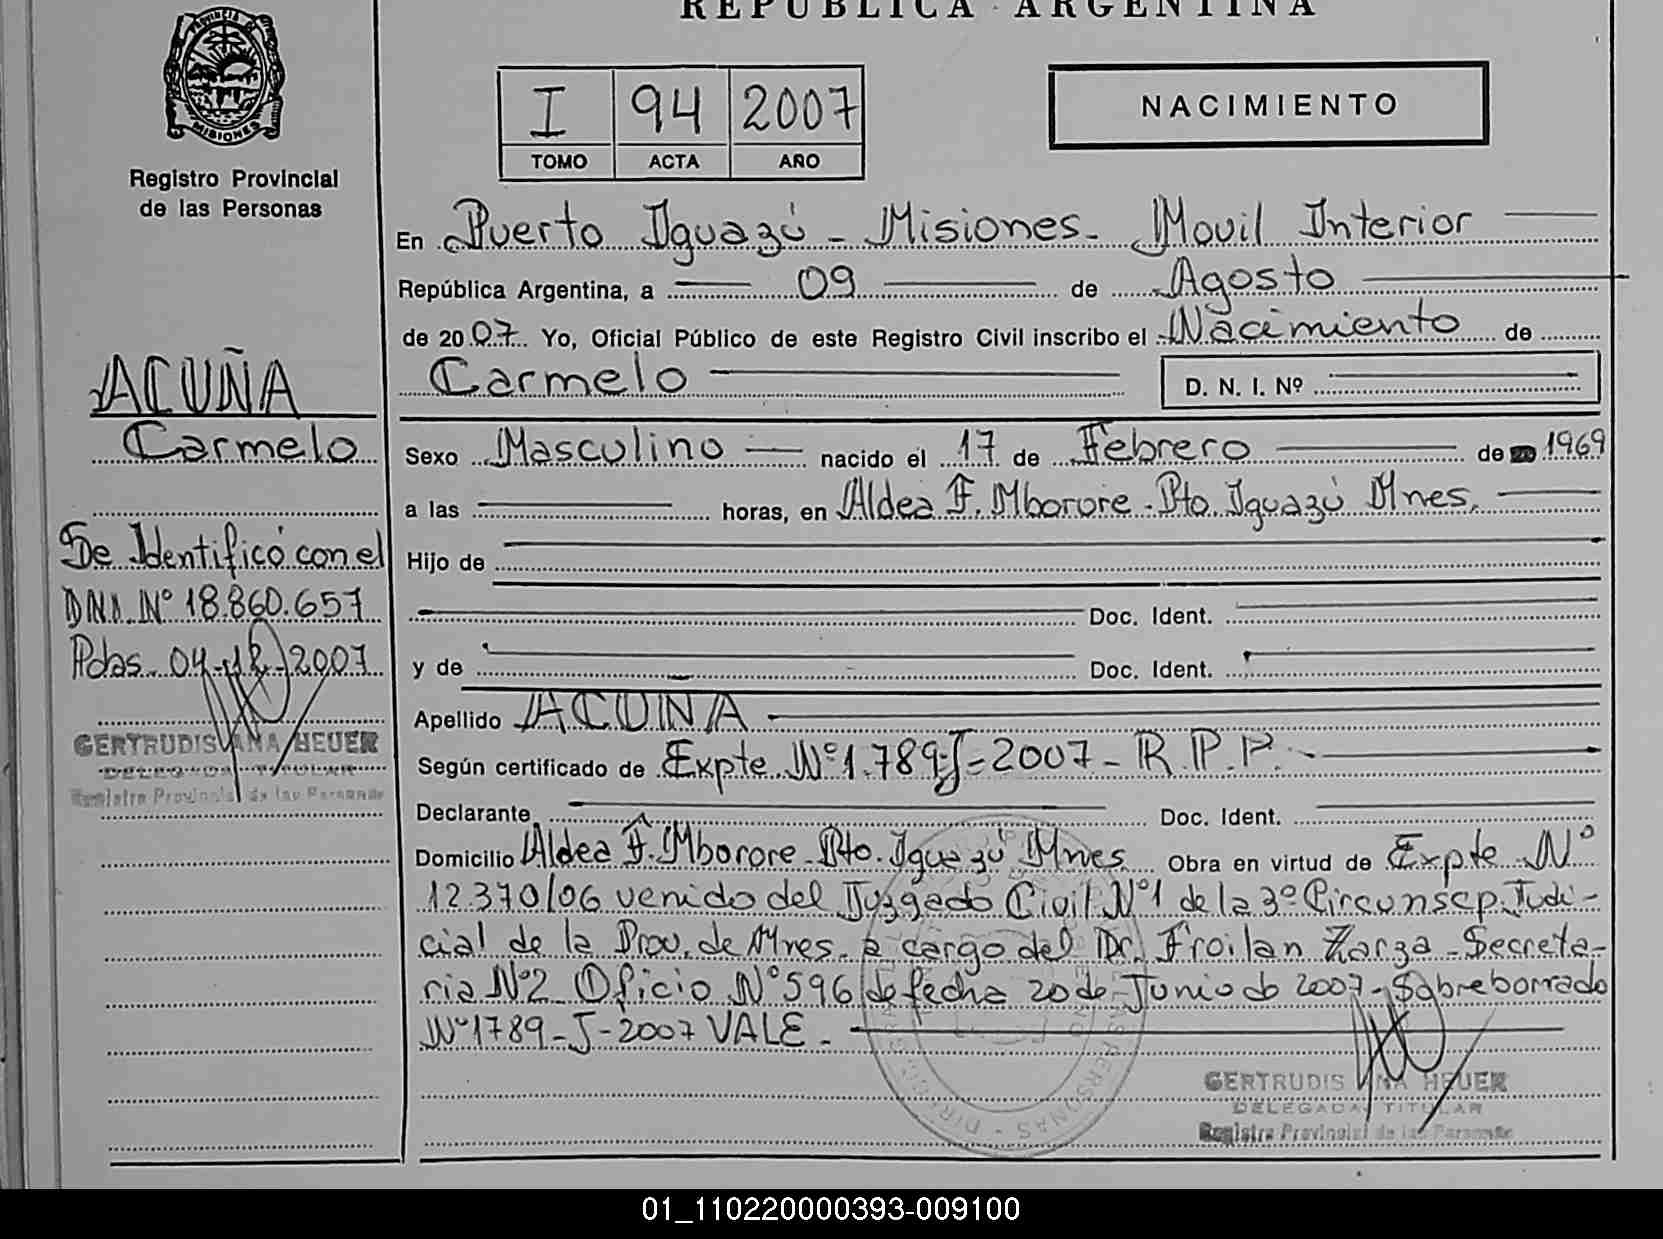 REPUBLICA ARGENTINA
PROVINCIA DE
MISIONES
Registro Provincial
de las Personas
I 94 2007
TOMO ACTA AÑO
NACIMIENTO
En Puerto Iguazú - Misiones - Movil Interior
República Argentina, a 09 de Agosto
de 2007 Yo, Oficial Público de este Registro Civil inscribo el Nacimiento de
Carmelo D. N. I. Nº
ACUÑA
Carmelo
Sexo Masculino nacido el 17 de Febrero de 1969
a las horas, en Aldea F. Mborore - Pto. Iguazú Mnes.
Se Identificó con el
DNI. Nº 18.860.657
Pdas. 04-12-2007
GERTRUDIS ANA HEUER
DELEGADA TITULAR
Registro Provincial de las Personas
Hijo de
Doc. Ident.
y de Doc. Ident.
Apellido ACUÑA
Según certificado de Expte Nº 1.789-J-2007 - R.P.P.
Declarante Doc. Ident.
Domicilio Aldea F. Mborore - Pto. Iguazú Mnes Obra en virtud de Expte Nº
12.370/06 venido del Juzgado Civil Nº1 de la 3º Circunscp. Judi-
cial de la Prov. de Mnes. a cargo del Dr. Froilan Zarza - Secreta-
ria Nº2 Oficio Nº 596 de fecha 20 de Junio de 2007 - Sobreborrado
Nº 1789-J-2007 VALE -
GERTRUDIS ANA HEUER
DELEGADA TITULAR
Registro Provincial de las Personas
01_110220000393-009100